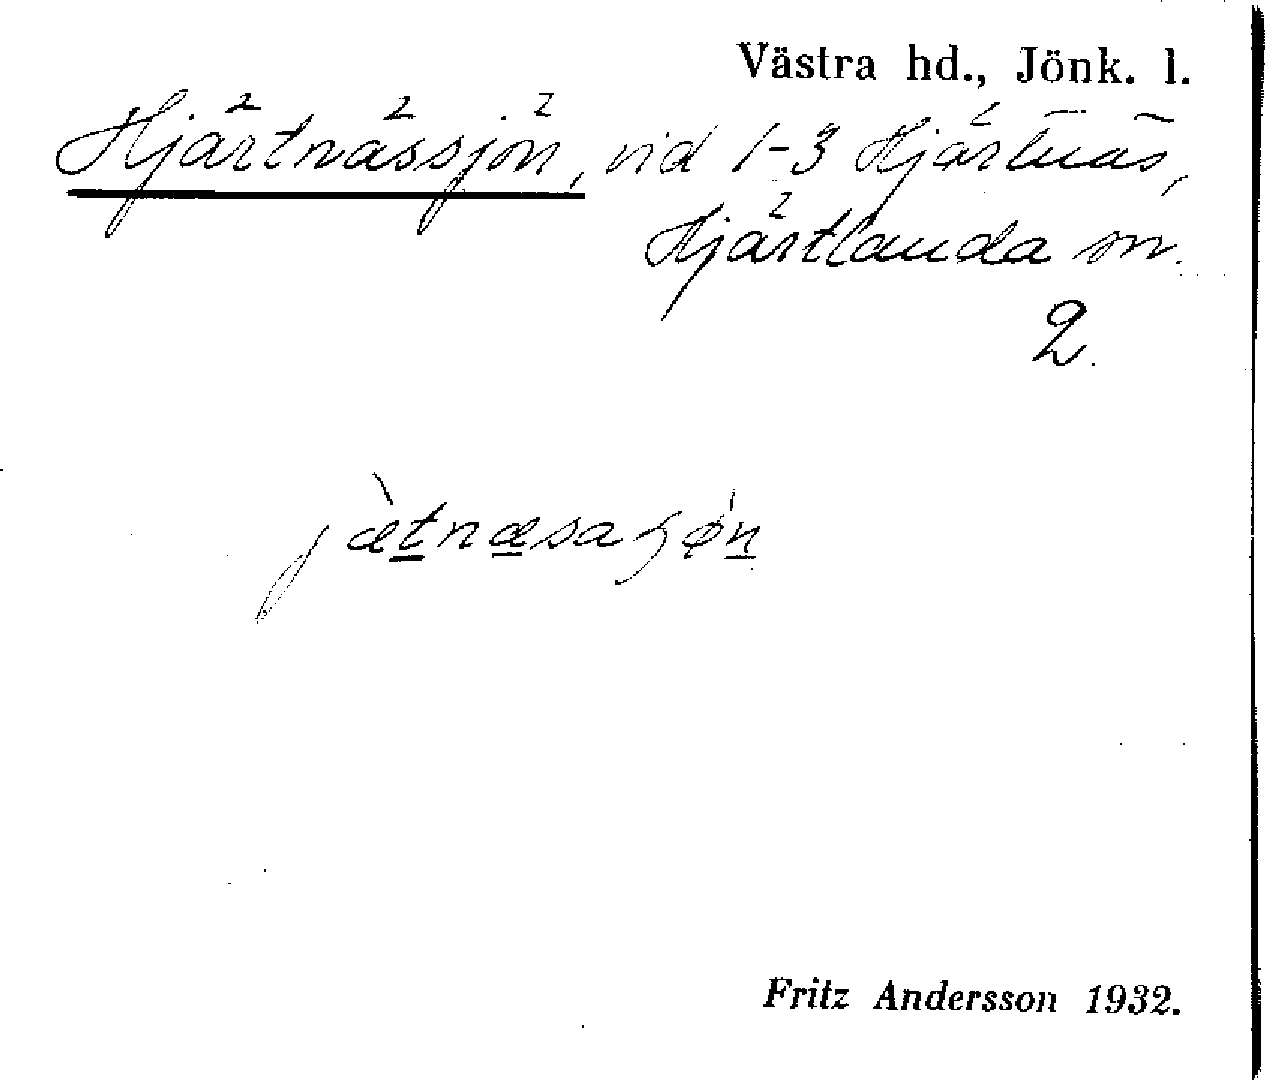 Västra hd., Jönk. l.
Hjärtnässjön, vid 1-3 Hjärtnäs,
Hjärtlanda sn.
2.
jæ̀tnæsaʒǿn
Fritz Andersson 1932.